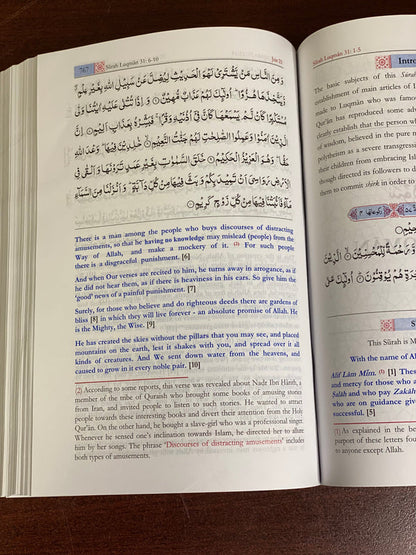 767 Sūrah Luqmān 31: 6-10 Juz 21
وَمِنَ النَّاسِ مَنْ يَّشْتَرِيْ لَهْوَ الْحَدِيْثِ لِيُضِلَّ عَنْ سَبِيْلِ اللهِ بِغَيْرِ عِلْمٍ
وَّيَتَّخِذَهَا هُزُوًا اُولٰٓئِكَ لَهُمْ عَذَابٌ مُّهِيْنٌ ۝ وَاِذَا تُتْلٰى عَلَيْهِ اٰيٰتُنَا وَلّٰى
مُسْتَكْبِرًا كَاَنْ لَّمْ يَسْمَعْهَا كَاَنَّ فِيْٓ اُذُنَيْهِ وَقْرًا فَبَشِّرْهُ بِعَذَابٍ اَلِيْمٍ ۝ اِنَّ
الَّذِيْنَ اٰمَنُوْا وَعَمِلُوا الصّٰلِحٰتِ لَهُمْ جَنّٰتُ النَّعِيْمِ ۝ خٰلِدِيْنَ فِيْهَا وَعْدَ اللهِ
حَقًّا وَهُوَ الْعَزِيْزُ الْحَكِيْمُ ۝ خَلَقَ السَّمٰوٰتِ بِغَيْرِ عَمَدٍ تَرَوْنَهَا وَاَلْقٰى فِي
الْاَرْضِ رَوَاسِيَ اَنْ تَمِيْدَ بِكُمْ وَبَثَّ فِيْهَا مِنْ كُلِّ دَآبَّةٍ وَاَنْزَلْنَا مِنَ السَّمَآءِ
مَآءً فَاَنْۢبَتْنَا فِيْهَا مِنْ كُلِّ زَوْجٍ كَرِيْمٍ ۝
There is a man among the people who buys discourses of distracting
amusements, so that he having no knowledge may mislead (people) from the
Way of Allah, and make a mockery of it. (2) For such people
there is a disgraceful punishment. [6]
And when Our verses are recited to him, he turns away in arrogance, as if
he did not hear them, as if there is heaviness in his ears. So give him the
'good' news of a painful punishment. [7]
Surely, for those who believe and do righteous deeds there are gardens of
bliss [8] in which they will live forever - an absolute promise of Allah. He
is the Mighty, the Wise. [9]
He has created the skies without the pillars that you may see, and placed
mountains on the earth, lest it shakes with you, and spread over it all
kinds of creatures. And We sent down water from the heavens, and
caused to grow in it every noble pair. [10]
(2) According to some reports, this verse was revealed about Nadr Ibn Hārith, a
member of the tribe of Quraish who brought some books of amusing stories
from Iran, and invited people to listen to such stories. He wanted to attract
people towards these interesting books and divert their attention from the Holy
Qur'ān. On the other hand, he bought a slave-girl who was a professional singer.
Whenever he sensed one's inclination towards Islam, he directed her to allure
him by her songs. The phrase 'Discourses of distracting amusements' includes
both types of amusements.
Sūrah Luqmān 31: 1-5
Intro
The basic subjects of this Sūra
establishment of main articles of I
related to Luqmān who was famou
Qur'ān has reproduced some adv
clearly establish that the person wh
of wisdom, believed in the pure m
polytheism as a severe transgressi
their children from embracing Isla
though directed its followers to d
them to commit shirk in order to d
وَّرَحْمَةً لِّلْمُحْسِنِيْنَ ۝ الَّذِيْنَ
هُمْ يُوْقِنُوْنَ ۝ اُولٰٓئِكَ عَلٰى
S
This Sūrah is M
With the name of Al
Alif Lām Mīm. (1) [1] These
and mercy for those who a
Salāh and who pay Zakāh
who are on guidance giv
successful. [5]
(1) As explained in the be
purport of these letters fou
to anyone except Allah.